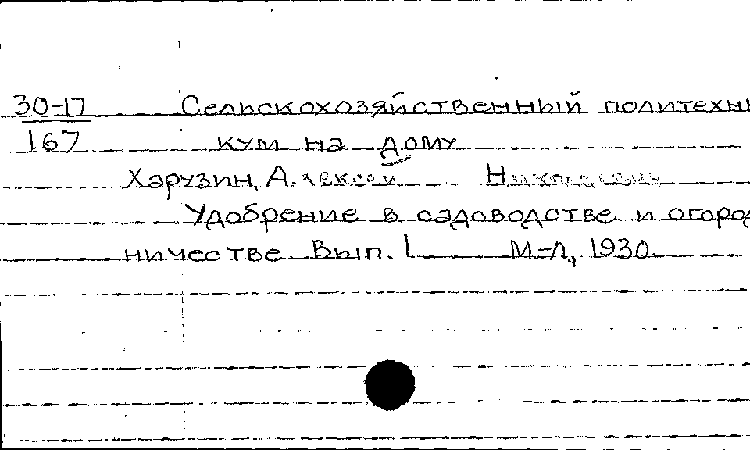 30-17 Сельскохозяйственный политехни
167 кум на дому
Харузин, Алексей Николаевич
Удобрение в садоводстве и огород
ничестве Вып. 1 М-Л, 1930